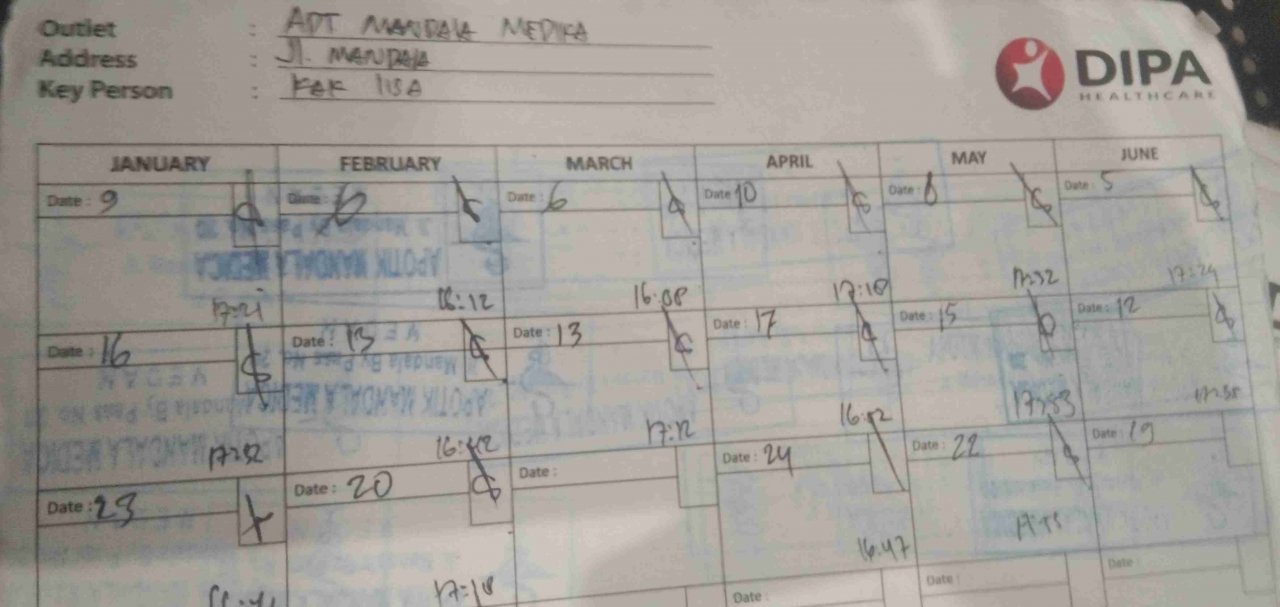 Outlet : APT MANDALA MEDIKA
Address : Jl. MANDALA
Key Person : KAK LISA
DIPA
HEALTHCARE
JANUARY FEBRUARY MARCH APRIL MAY JUNE
Date : 9 Date : 6 Date : 6 Date : 10 Date : 8 Date : 5
APOTIK MANDALA MEDICA
17:21 16:08 17:18 17:32 17:24
Date : 16 Date : 13 Date : 13 Date : 17 Date : 15 Date : 12
Mandala By Pass No
APOTIK MANDALA MEDICA
17:32 16:42 17:12 16:52 17:33
Date : 23 Date : 20 Date : Date : 24 Date : 22 Date : 19
17:18 16:47
Date : Date : Date :